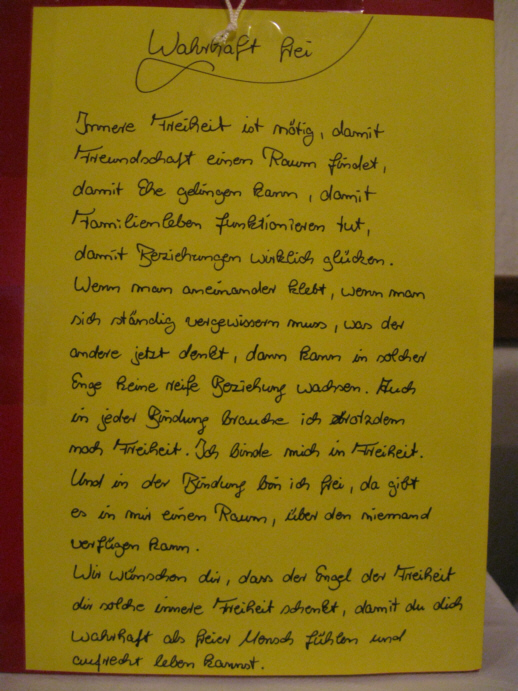 Wahrhaft frei
Innere Freiheit ist nötig, damit
Freundschaft einen Raum findet,
damit Ehe gelingen kann, damit
Familienleben funktionieren tut,
damit Beziehungen wirklich glücken.
Wenn man aneinander klebt, wenn man
sich ständig vergewissern muss, was der
andere jetzt denkt, dann kann in solcher
Enge keine reife Beziehung wachsen. Auch
in jeder Bindung brauche ich trotzdem
noch Freiheit. Ich binde mich in Freiheit.
Und in der Bindung bin ich frei, da gibt
es in mir einen Raum, über den niemand
verfügen kann.
Wir wünschen dir, dass der Engel der Freiheit
dir solche innere Freiheit schenkt, damit du dich
wahrhaft als freier Mensch fühlen und
aufrecht leben kannst.